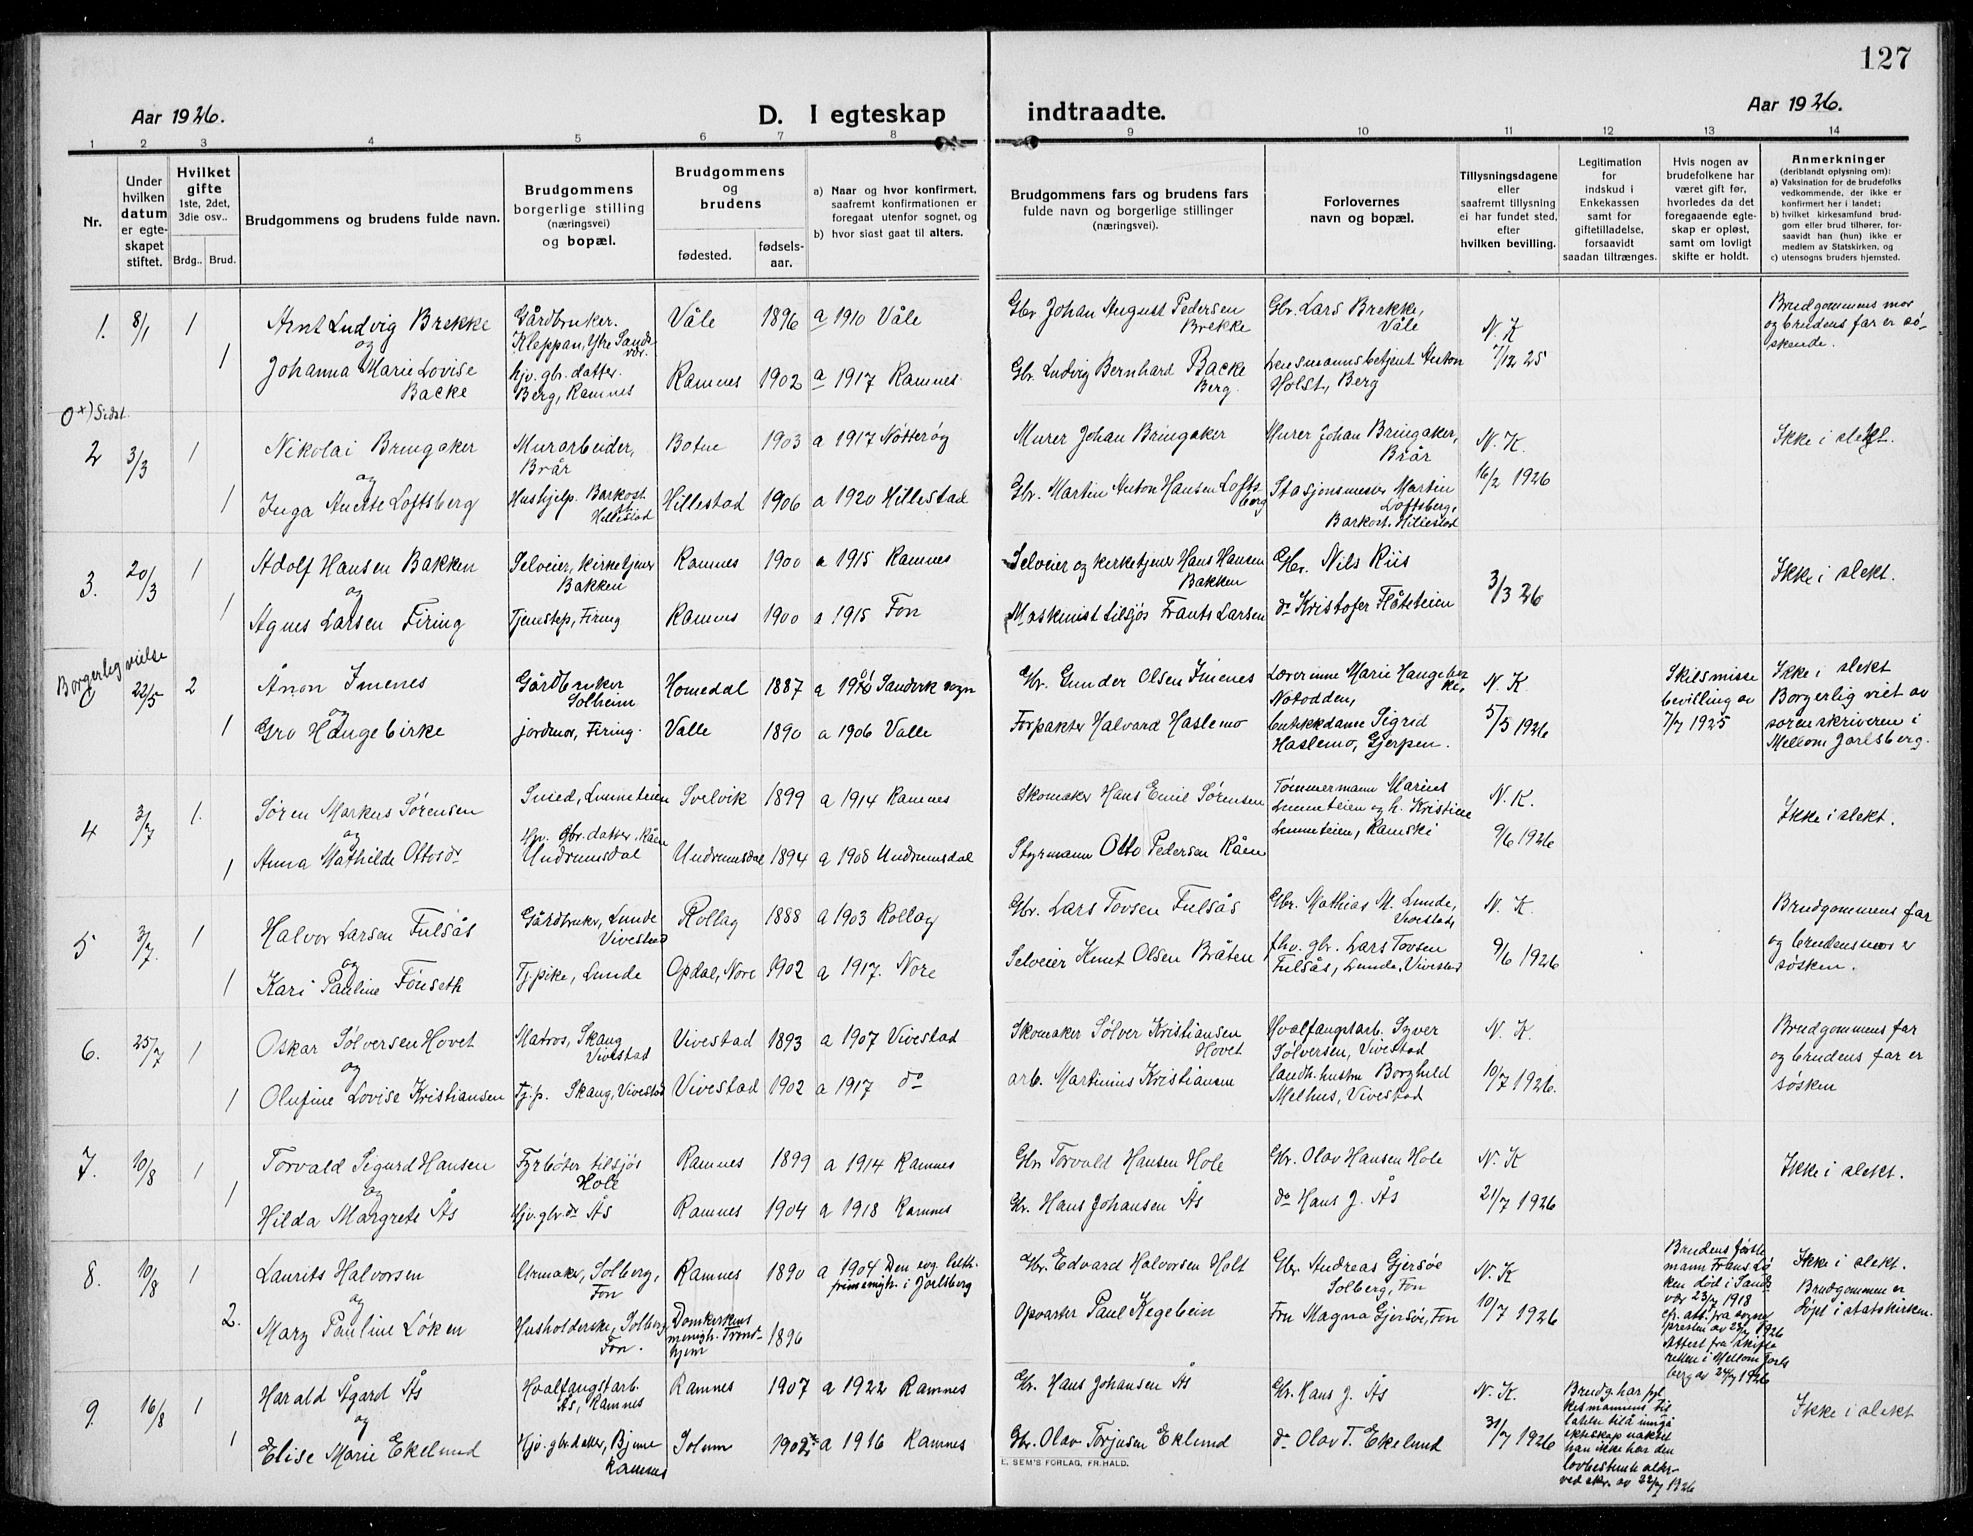 127
Aar 1926.
D. I egteskap indtraadte.
Aar 1926.
1 2 3 4 5 6 7 8 9 10 11 12 13 14
Nr.
Under hvilken datum er egteskapet stiftet.
Hvilket gifte 1ste, 2det, 3die osv..
Brdg.. Brud.
Brudgommens og brudens fulde navn.
Brudgommens borgerlige stilling (næringsvei) og bopæl.
Brudgommens og brudens
fødested. fødselsaar.
a) Naar og hvor konfirmert, saafremt konfirmationen er foregaat utenfor sognet, og
b) hvor sidst gaat til alters.
Brudgommens fars og brudens fars fulde navn og borgerlige stillinger (næringsvei).
Forlovernes navn og bopæl.
Tillysningsdagene eller saafremt tillysning ei har fundet sted, efter hvilken bevilling.
Legitimation for indskud i Enkekassen samt for giftetilladelse, forsaavidt saadan tiltrænges.
Hvis nogen av brudefolkene har været gift før, hvorledes da det foregaaende egteskap er opløst, samt om lovligt skifte er holdt.
Anmerkninger (deriblandt oplysning om): a) Vaksination for de brudefolks vedkommende, der ikke er konfirmert her i landet; b) hvilket kirkesamfund brudgom eller brud tilhører, forsaavidt han (hun) ikke er medlem av Statskirken, og c) utensogns bruders hjemsted.
1. 8/1 1 Arnt Ludvig Brekke Gårdbruker. Kleppan, Ytre Sandevær. Våle 1896 a 1910 Våle Gbr Johan August Pedersen Brekke Gbr. Lars Brekke, Våle N. K Brudgommens mor og brudens far er søskende.
og
1 Johanna Marie Lovise Backe hjv. gbr. datter. Berg, Ramnes Ramnes 1902 a 1917 Ramnes Gbr. Ludvig Bernhard Backe Berg. Lensmannsbetjent Anton Holst, Berg 7/12 25
0 +) Sidst.
2 3/3 1 Nikolai Bringaker Murarbeider, Brår Botne 1903 a 1917 Nøtterøy Murer Johan Bringaker Murer Johan Bringaker, Brår N. K. Ikke i slekt.
og
1 Inga Anette Loftsberg Hushjelp. Barkost Hillestad Hillestad 1906 a 1920 Hillestad Gbr. Martin Anton Hansen Loftsberg Stasjonsmester Martin Loftsberg, Barkost. Hillestad 16/2 1926
3. 20/3 1 Adolf Hansen Bakken Selveier, kirketjener Bakken Ramnes 1900 a 1915 Ramnes Selveier og kirketjener Hans Hansen Bakken Gbr. Nils Riis 3/3 26 Ikke i slekt.
og
1 Agnes Larsen Firing Tjenstep, Firing Ramnes 1900 a 1915 Fon Maskinist tilsjøs Frants Larsen do Kristofer Flåteteien
Borgerlig vielse
0 22/5 2 Ånon Imenes Gårdbruker Solheim Homedal 1887 a 1901 Sandvik sogn Gbr. Gunder Olsen Imenes Lærerinne Marie Haugebirke, Notodden, N. K. Skilsmisse bevilling av 7/7 1925 Ikke i slekt Borgerlig viet av sorenskriveren i Mellom Jarlsberg.
og
1 Gro Haugebirke jordmor, Firing. Valle 1890 a 1906 Valle Forpakter Halvard Haslemo butikkdame Sigrid Haslemo, Gjerpen. 5/5 1926
4 3/7 1. Søren Markus Sørensen Smed, Linneteien Svelvik 1899 a 1914 Ramnes Skomaker Hans Emil Sørensen Tømmermann Marius Linneteien og h. Kristine Linneteien, Ramski N. K. Ikke i slekt.
og
1 Anna Mathilde Ottosdr Hjv. Gbr. datter. Råen Undrumsdal Undrumsdal 1894 a 1908 Undrumsdal Styrmann Otto Pedersen Råen 9/6 1926
5 3/7. 1 Halvor Larsen Fulsås Gårdbruker, Lunde Vivestad Rollag 1888 a 1903 Rollag Gbr. Lars Tovsen Fulsås Gbr. Mathias M. Lunde, Vivestad, N. K. Brudgommens far og brudens mor er søsken.
og
1 Kari Pauline Fønseth Tj. pike, Lunde Opdal, Nore 1902 a 1917. Nore Selveier Knut Olsen Bråten fhv. gbr. Lars Tovsen Fulsås, Lunde, Vivestad 9/6 1926
6. 25/7 1 Oskar Sølversen Hovet Matros, Skaug Vivestad Vivestad 1893 a 1907 Vivestad Skomaker Sølver Kristiansen Hovet Hvalfangstarb. Syver Sølversen, Vivestad N. K. Brudgommens far og brudens far er søsken
og
1 Olufine Lovise Kristiansen Tj.p. Skaug, Vivestad Vivestad 1902 a 1917 do arb. Martinius Kristiansen landh. hustru Borghild Melhus, Vivestad 10/7 1926.
7. 10/8 1 Torvald Sigurd Hansen Fyrbøter tilsjøs Hole Ramnes 1899 a 1914 Ramnes Gbr Torvald Hansen Hole Gbr. Olav Hansen Hole N. K Ikke i slekt.
og
1 Hilda Margrete Ås Hjv. gbr. dr Ås Ramnes 1904 a 1918 Ramnes Gbr. Hans Johansen Ås do Hans J. Ås 21/7 1926
8. 10/8 1 Laurits Halvorsen Urmaker, Solberg, Fon Ramnes 1890 a 1904 Den evg. luth. frimenigh. i Jarlsberg Gbr. Edvard Halvorsen Holt Gbr. Andreas Gjersøe Solberg, Fon N. K Brudens første mann Frans Løken død i Sandevær 23/7 1918 cfr. att. fra sognepresten av 23/7 1926 Attest fra skifteretten i Mellom Jarlsberg av 24/7 1926 Ikke i slekt. Brudgommen er døpt i statskirken.
og
2. Mary Pauline Løken Husholderske, Solberg Fon. Domkirkens menigh. Trondhjem 1896 Opvarter Paul Kegebein Fru Magna Gjersøe, Fon 10/7 1926
9. 16/8 1 Harald Ågard Ås Hvalfangstarb. Ås, Ramnes Ramnes 1907 a 1922 Ramnes Gbr. Hans Johansen Ås Gbr. Hans J. Ås N. K. Brudg. har fylkesmannens tillatelse til å inngå ekteskap uaktet han ikke har den lovbestemte alder ved skr. av 22/7 1926 Ikke i slekt
og
1 Elise Marie Ekelund Hjv. gbr. datter, Bjune Ramnes Solum 1902 a 1916 Ramnes Gbr. Olav Torjusen Eklund do Olav T. Ekelund 31/7 1926
E. SEM'S FORLAG, FR.HALD.